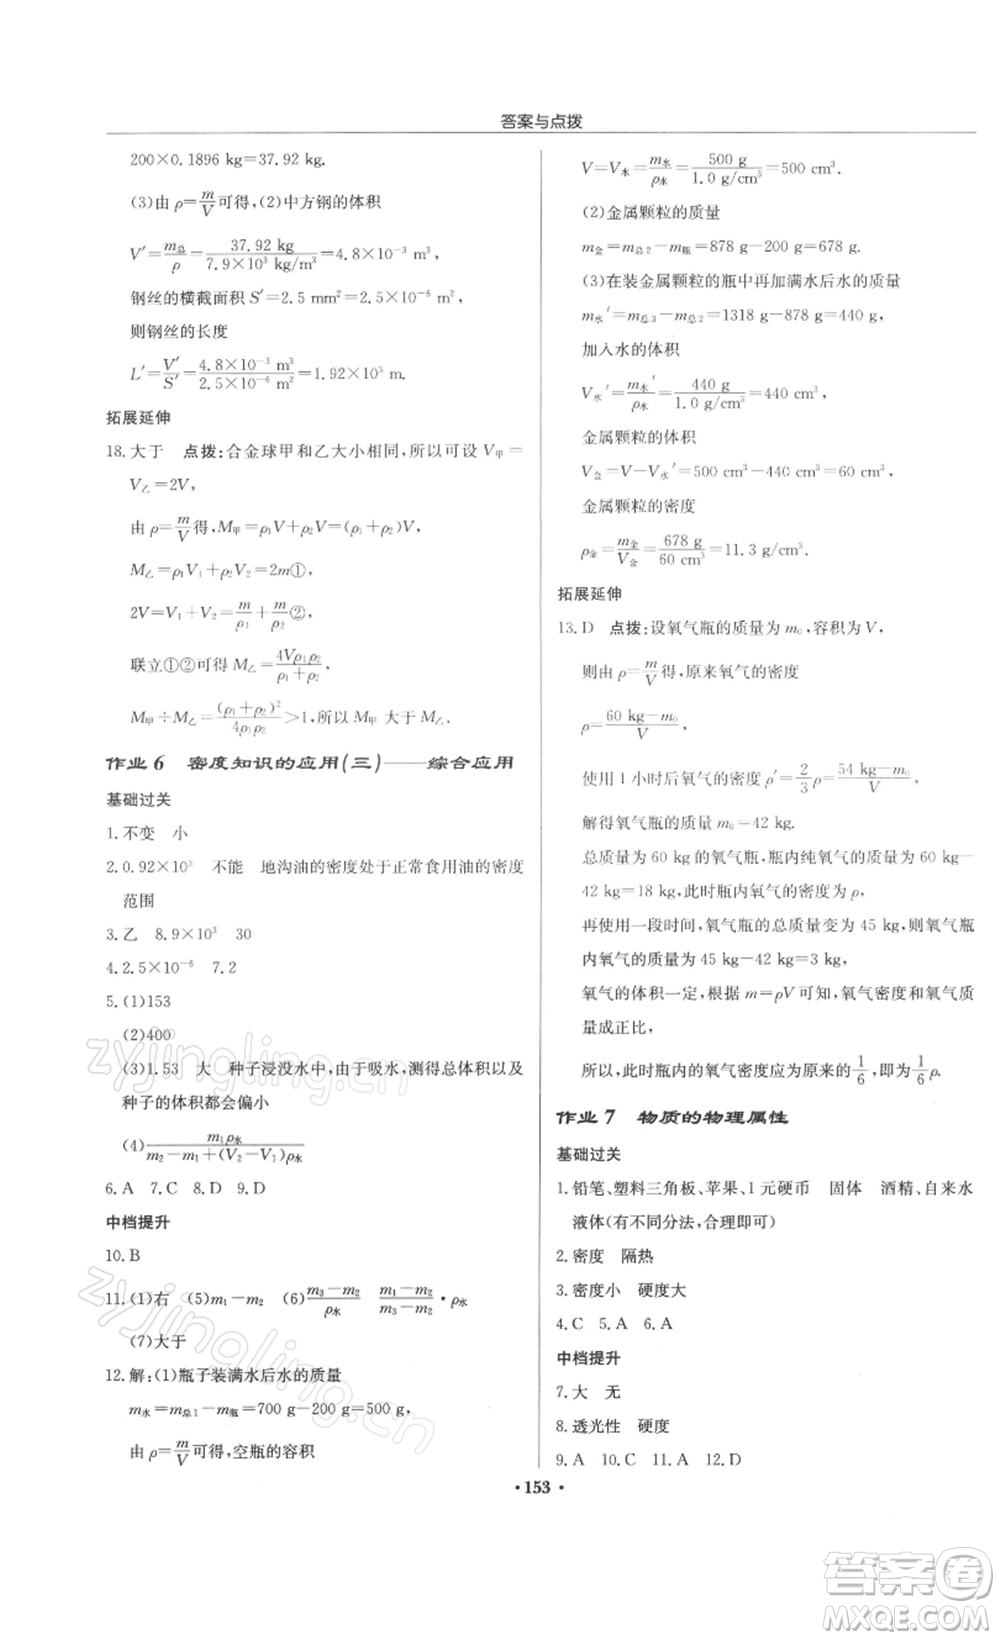 答案与点拨
200×0.1896 kg=37.92 kg.
(3)由 ρ=m/V 可得,(2)中方钢的体积
V′=m总/ρ=37.92 kg/7.9×10³ kg/m³=4.8×10⁻³ m³,
钢丝的横截面积 S′=2.5 mm²=2.5×10⁻⁶ m²,
则钢丝的长度
L′=V′/S′=4.8×10⁻³ m³/2.5×10⁻⁶ m²=1.92×10³ m.
拓展延伸
18.大于 点拨:合金球甲和乙大小相同,所以可设 V甲=
V乙=2V,
由 ρ=m/V 得,M甲=ρ₁V+ρ₂V=(ρ₁+ρ₂)V,
M乙=ρ₁V₁+ρ₂V₂=2m①,
2V=V₁+V₂=m/ρ₁+m/ρ₂②,
联立①②可得 M乙=4Vρ₁ρ₂/ρ₁+ρ₂,
M甲÷M乙=(ρ₁+ρ₂)²/4ρ₁ρ₂>1,所以 M甲 大于 M乙.
作业 6 密度知识的应用(三)——综合应用
基础过关
1.不变 小
2.0.92×10³ 不能 地沟油的密度处于正常食用油的密度
范围
3.乙 8.9×10³ 30
4.2.5×10⁻⁶ 7.2
5.(1)153
(2)400
(3)1.53 大 种子浸没水中,由于吸水,测得总体积以及
种子的体积都会偏小
(4)m₁ρ水/m₂−m₁+(V₂−V₁)ρ水
6.A 7.C 8.D 9.D
中档提升
10.B
11.(1)右 (5)m₁−m₂ (6)m₃−m₂/ρ水 m₁−m₂/m₃−m₂·ρ水
(7)大于
12.解:(1)瓶子装满水后水的质量
m水=m总1−m瓶=700 g-200 g=500 g,
由 ρ=m/V 可得,空瓶的容积
V=V水=m水/ρ水=500 g/1.0 g/cm³=500 cm³.
(2)金属颗粒的质量
m金=m总2−m瓶=878 g-200 g=678 g.
(3)在装金属颗粒的瓶中再加满水后水的质量
m水′=m总3−m总2=1318 g-878 g=440 g,
加入水的体积
V水′=m水′/ρ水=440 g/1.0 g/cm³=440 cm³,
金属颗粒的体积
V金=V−V水′=500 cm³−440 cm³=60 cm³,
金属颗粒的密度
ρ金=m金/V金=678 g/60 cm³=11.3 g/cm³.
拓展延伸
13.D 点拨:设氧气瓶的质量为 m₀,容积为 V,
则由 ρ=m/V 得,原来氧气的密度
ρ=60 kg−m₀/V,
使用 1 小时后氧气的密度 ρ′=2/3ρ=54 kg−m₀/V,
解得氧气瓶的质量 m₀=42 kg.
总质量为 60 kg 的氧气瓶,瓶内纯氧气的质量为 60 kg−
42 kg=18 kg,此时瓶内氧气的密度为 ρ,
再使用一段时间,氧气瓶的总质量变为 45 kg,则氧气瓶
内氧气的质量为 45 kg−42 kg=3 kg,
氧气的体积一定,根据 m=ρV 可知,氧气密度和氧气质
量成正比,
所以,此时瓶内的氧气密度应为原来的 1/6,即为 1/6ρ.
作业 7 物质的物理属性
基础过关
1.铅笔、塑料三角板、苹果、1 元硬币 固体 酒精、自来水
液体(有不同分法,合理即可)
2.密度 隔热
3.密度小 硬度大
4.C 5.A 6.A
中档提升
7.大 无
8.透光性 硬度
9.A 10.C 11.A 12.D
· 153 ·
zyjingling.cn
zyjingling.cn
答案圈
MXQE.COM